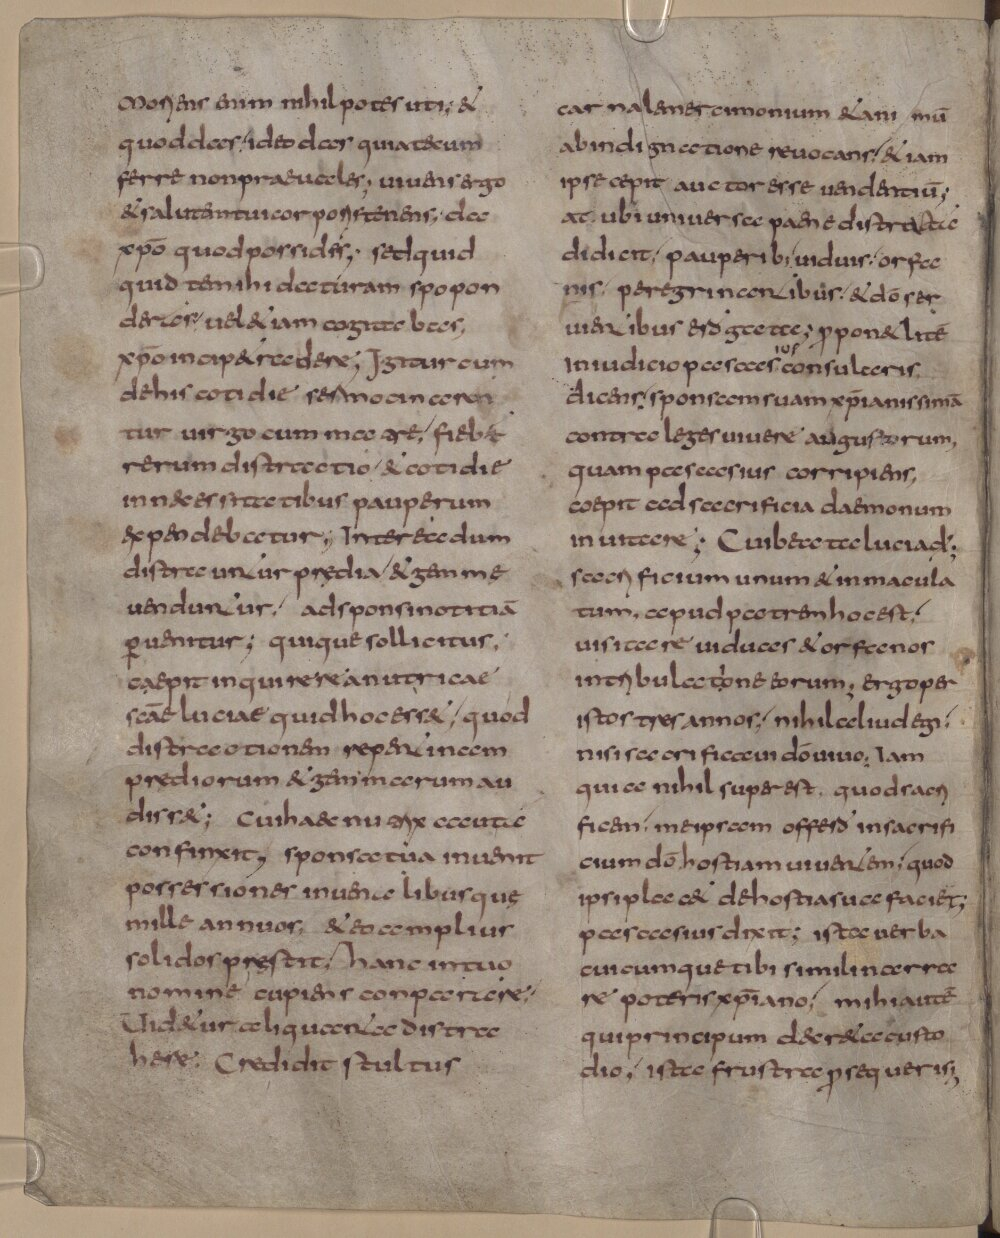 Moriens enim nihil potes uti; &
quod das, ideo das quia tecum
ferre non praeuales; uiuens ergo
& salutem tui corporis tenens, da
xpō quod possides; sed quid
quid te mihi daturam spopon
deras, uel &iam cogitabas,
xpō incipe tradere; Igitur cum
de his cotidie sermocinaren
tur uirgo cum matre, fieb&
rerum distractio, & cotidie
in necessitatibus pauperum
expendebatur; Interea dum
distraunt ur prędia, & gemme
uenduntur, ad sponsi notitiā
ꝑuenitur; quique sollicitus,
caepit inquirere a nutricae
scāe luciae quid hoc ess&, quod
distractionem reperirent eam
prediorum & gemmarum au
diss&; Cui haec nutrix caute
confinxit, sponsa tua inuenit
possessiones inuenalibus que
mille annuos, & eo amplius
solidos prestit, hanc in tuo
nomine cupiens conparare,
Uid&ur aliquanta distra
here. Credidit stultus
carnalem ercimonium & ani mū
ab indignatione reuocans, & iam
ipse cepit auctor esse uendentiū;
at ubi uniuersa paene distracta
didicit, pauperib; uiduis, orfa
nis, peregrinantibus, & dō ser
uientibus erogata; ꝓpon& litē
in iudicio pascasius consularis
dicens, sponsam suam xp̄ianissimā
contra leges uiuere augustorum,
quam pascasius corripiens,
coepit ad sacrificia daemonum
inuitare; Cui beata lucia d;
sacrificium uinum & inmacula
tum, apud patrem hoc est,
uisitare uiduas & orfanos
in tribulatione eorum; ergo per
istos tres annos, nihil aliud egi,
nisi sacrificaui dō uiuo, Iam
quia nihil superest, quod sacri
ficem, me ipsam offero in sacrifi
cium dō hostiam uiuentem, quod
ipsi plac& de hostia sua faciet;
pascasius dixit; ista uerba
cuicumque tibi simili narra
re poteris xp̄iano, mihi autē
qui principum decreta custo
dio, ista frustra ꝓsequeris;